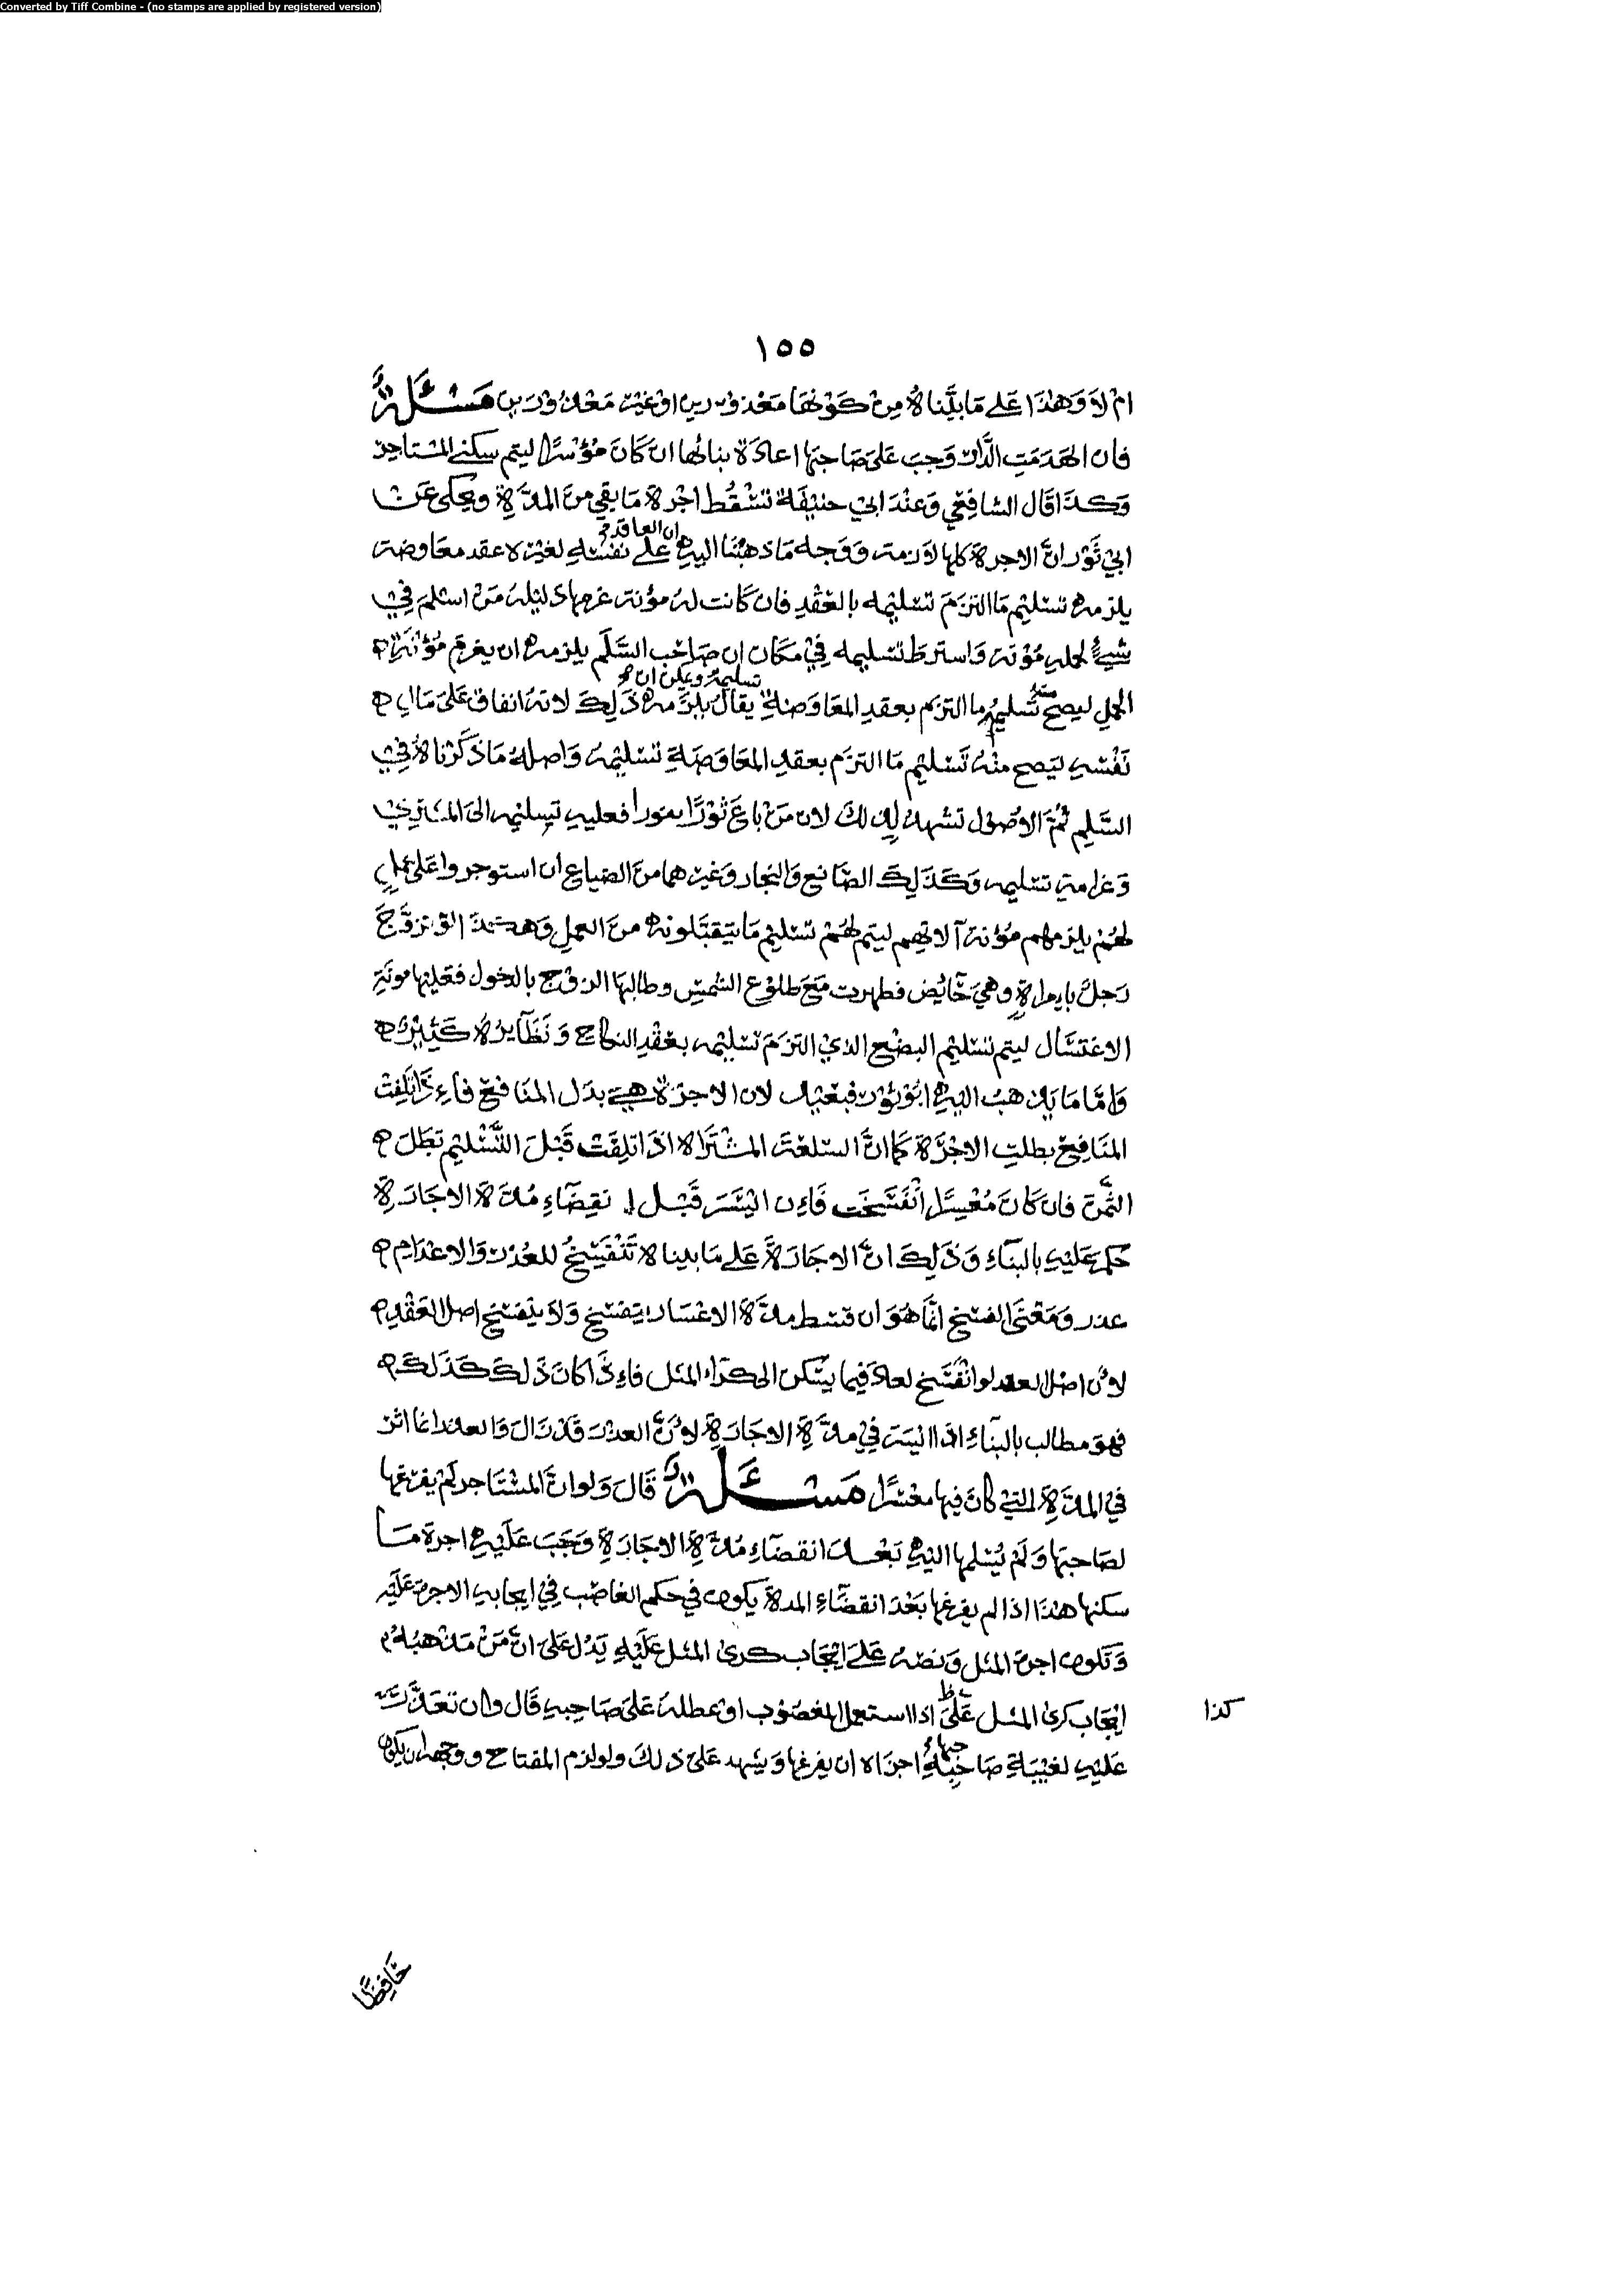 Converted by Tiff Combine - (no stamps are applied by registered version)
١٥٥
ام لا وَهٰذَا عَلى مَا بيَّناهُ مِنْ كَوْنهَا مَعْذورين اوْغيْر مَعْذوْرَين مَسْئَلةٌ
فان انهَدَمَتِ الدَّار وَجبَ عَلى صَاحبَها اعادَة بنائها ان كَانَ مُؤسرًا ليتم سكنى المستاجر
وَكذا قال الشافعي وَعنْدَ ابي حنيْفَة تسْقُط اجْرة مَا بقي منَ المدَّةِ ويحكى عَن
ابي ثَوْر انَّ الاجرة كلها لازمة وَوَجه مَا ذهبْنا اليه ان العاقد على نفسْه لغيْره عقد معاوضة
يلزمه تسْليْم مَا التزَمَ تسْليمه بالعَقْدِ فان كانت لهُ مؤنة غرمها دَليْلهُ مَنْ اسْلمَ في
شيءٍ لحمله مُؤنة وَاشترط تسْليمه فِيْ مكان ان صَاحب السَّلَم يلزمه ان يغرم مُؤْنَة
الحمل ليصح منه تسْليم ما التزم بعقدِ المعَاوَضةِ تسليمه ويمكن ان يقالُ يلزَمه ذَلِكَ لانهُ انفاق عَلىَ مَالِ
نَفْسهِ ليَصح منْهُ تَسْليم مَا التزَم بعقدِ المعَاوَضَةِ تسْليْمهُ وَاصلهُ مَا ذكَرْناهُ في
السَّلمِ ثُمَّ الاصُوْل تشهدُ لِذلكَ لان مَنْ باعَ ثوْرًا فعليه تسليمه الى المشتري
وَغرامة تسْليمه وَكَذَلِكَ الصَّانع وَالنجار وَغيْرهما منَ الصناع ان استوجروا عَلى عملٍ
لهُمْ يلزمهم مُؤنة آلاتهم ليتم لهُمْ تسْليْم مَا يتقبَّلونه منَ العمل وَهكذَا لوْ تزوَّجَ
رَجلٌ بامراةٍ وهيَ حَائِض فطهرت مَعَ طلوْع الشمس وطالبها الزوْج بالدخول فعليْها مونَة
الاغتسَال ليتم تسْليْم البضْع الذيْ التزمَ تسْليمه بعَقْدِ النكاح وَنَظَآيرُهُ كَثيْرَة
وَامَّا مَا يذهبُ اليْه ابُوْثوْر فبعيْد لان الاجْرَة هيَ بدَل المنَافع فاءِذَا تَلِفَتْ
المنَافِع بطلتِ الاجْرَة كمَا انَّ السّلعَة المشْترَاة اذَا تلِفَتْ قَبْلَ التَّسْليْم بَطَلَ
الثَّمن فان كانَ مُعْسِرًا انْفَسَخَت فَاءِن ايْسَرَ قَبْل انقضَآءِ مُدَّةِ الاجَارَةِ
حُكمَ عَليْهِ بالبنَآءِ وَذلِكَ انَّ الاجَارَةَ عَلى مَا بينا لا تَنْفَسِخُ للعُذْر وَالاعْدَام
عذر وَمَعْنَى الفسْخ انَّما هُوَ ان قسْط مدَّةِ الاعْسَار ينفسْخ وَلا ينْفسْخ اصل العَقْدِ
لاءن اصْل العقد لو انْفَسَخ لعادَ فيما يسْكن الى كرآء المثل فاءِذَا كانَ ذَلكَ كَذَلكَ
فهوَ مطالب بالبنآءِ اذا ايسَر فيْ مدَّةِ الاجَارَةِ لاءنَّ العذْرَ قَدْ زالَ وَالعذر انما اثر
في المدَّةِ التي كانَ فيها معْسرًا مَسْئَلةٌ قَالَ وَلو انَّ المسْتَاجر لَمْ يفرغها
لصَاحبَها وَلَمْ يُسْلمها اليْهِ بَعْد انقضَآءِ مُدَّةِ الاجَارَةِ وَجَبَ عَلَيْهِ اجرة مَا
سكنها هٰذَا اذا لم يفرغها بَعْدَ انقضَآءِ المدة يكون في حكم الغاصب فِي ايجاب الاجرة عَلَيْه
وَتكون اجرة المثل وَنصّه عَلىَ ايْجَاب كرى المثل عَلَيْهِ يَدُل عَلى انَّ مَنْ مَذهبُهُ
ايجَاب كرى المثل عَلىَ اذا استعمل المغصُوْب اوْ عطلهُ عَلى صَاحبه قَال وان تعَذَّرَ
كذا
عَليْهِ لغيْبَةِ صَاحِبهَا اجزاه ان يفرغها وَيشهد عَلى ذلكَ ولو لزم المفتاح ووجهه ان يكون
حَافِظًا